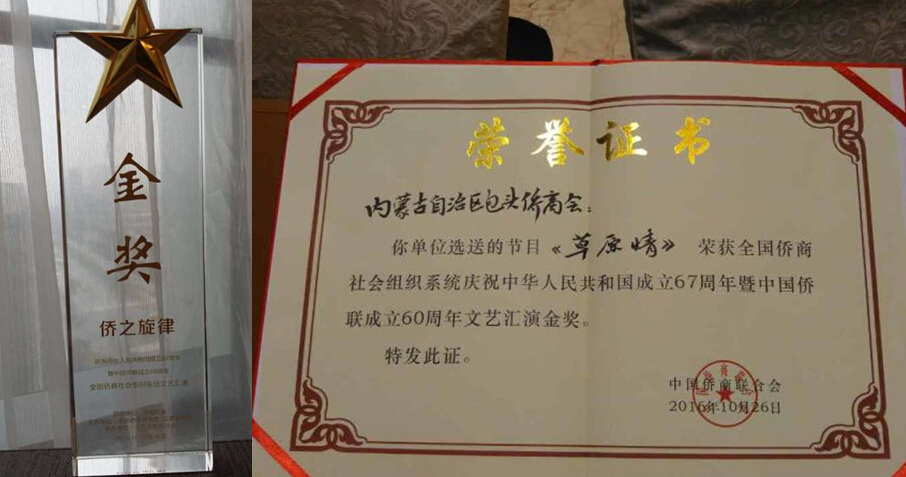 金
奖
侨之旋律
庆祝中华人民共和国成立67周年
暨中国侨联成立60周年
全国侨商社会组织系统文艺汇演
荣誉证书
内蒙古自治区包头侨商会：
你单位选送的节目《草原情》荣获全国侨商
社会组织系统庆祝中华人民共和国成立67周年暨中国侨
联成立60周年文艺汇演金奖。
特发此证。
中国侨商联合会
2016年10月26日